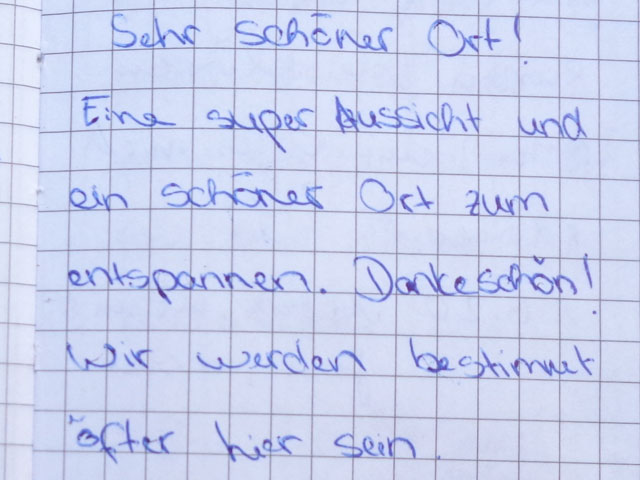 Sehr schöner Ort!
Eine super Aussicht und
ein schöner Ort zum
entspannen. Dankeschön!
Wir werden bestimmt
öfter hier sein.